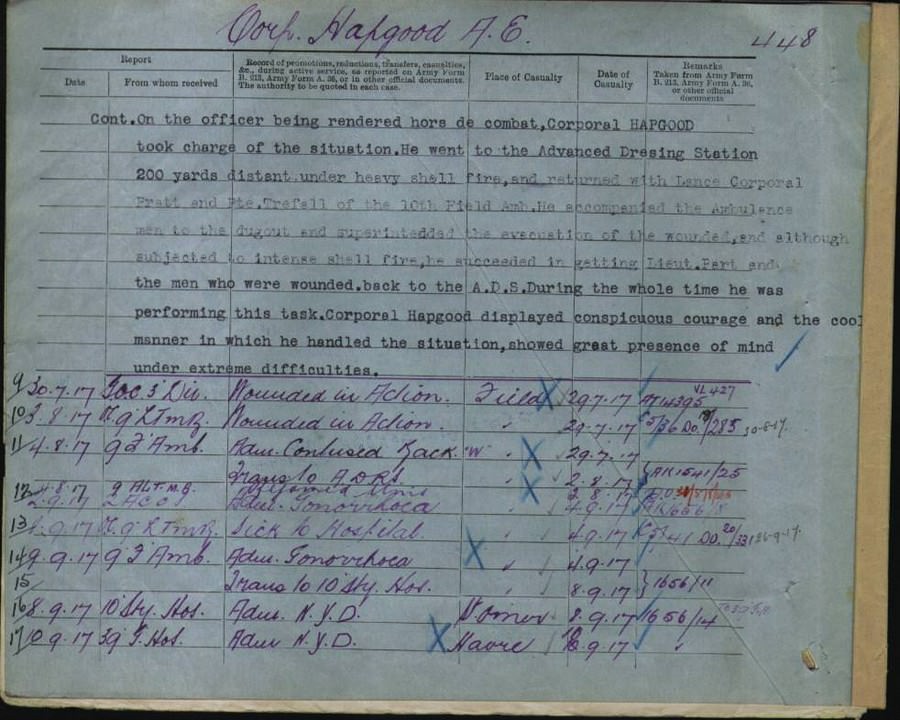 Corp. Hapgood A. E.
448
Report
Date
From whom received
Record of promotions, reductions, transfers, casualties, &c., during active service, as reported on Army Form B. 213, Army Form A. 36, or in other official documents. The authority to be quoted in each case.
Place of Casualty
Date of Casualty
Remarks
Taken from Army Form B. 213, Army Form A. 36, or other official documents
Cont.On the officer being rendered hors de combat,Corporal HAPGOOD
took charge of the situation.He went to the Advanced Dresing Station
200 yards distant.under heavy shell fire,and returned with Lance Corporal
Pratt and Pte.Trefall of the 10th Field Amb.He accompanied the Ambulance
men to the dugout and superintedded the evacuation of the wounded,and although
subjected to intense shell fire,he succeeded in getting Lieut.Part and
the men who were wounded.back to the A.D.S.During the whole time he was
performing this task.Corporal Hapgood displayed conspicuous courage and the cool
manner in which he handled the situation,showed great presence of mind
under extreme difficulties.
9 30.7.17 Goc 3 Div. Wounded in Action. Field 29.7.17 VL 427
10 3.8.17 Wounded in Action. " 29.7.17 Do. 19/285 30-8-17.
11 4.8.17 9 F Amb. Adm. Contused Back. "W" " 29.7.17
Trans to A.D.R.S. " 2.8.17 1541/25
12 4.8.17 Rejoined Unit " 3.8.17
2.9.17 2 A.C.C.S. Adm. Gonorrhoea " 4.9.17
13 .9.17 Sick to Hospital. " 4.9.17 41 Do. 20/331 26-9-17.
14 9.9.17 9 F Amb. Adm. Gonorrhoea " 4.9.17
15 Trans to 10 Sty. Hos. " 8.9.17 1656/11
16 8.9.17 10 Sty. Hos. Adm. N.Y.D. 8.9.17 1656/14
17 10.9.17 39 G. Hos. Adm N.Y.D. Havre .9.17 "